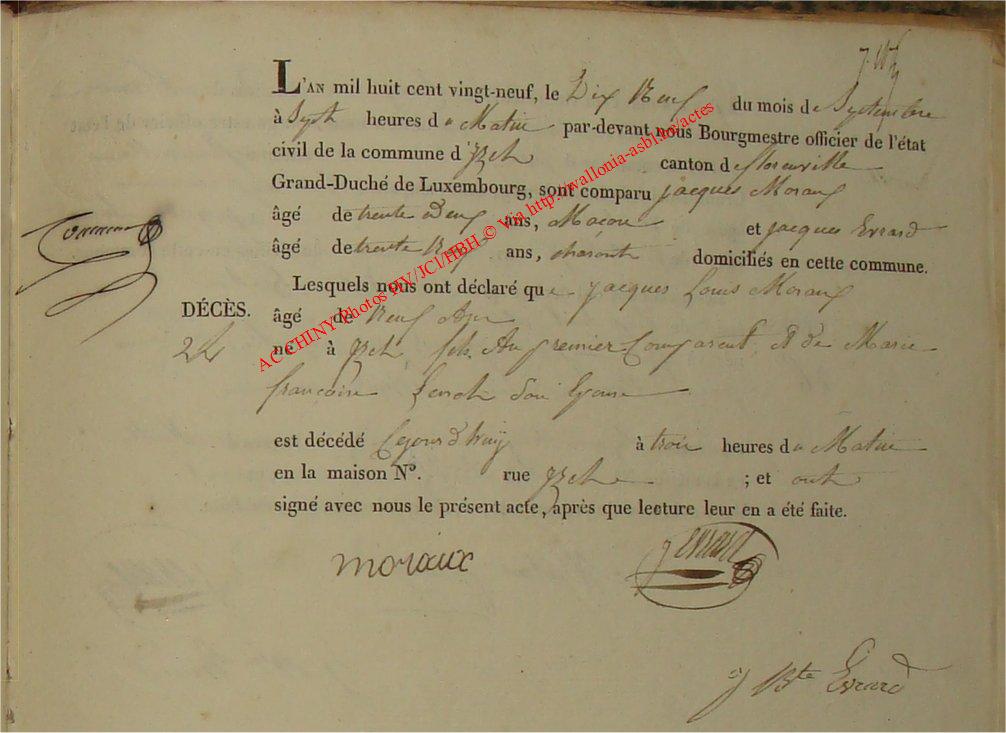 L'AN mil huit cent vingt-neuf, le Dix Neuf du mois de Septembre
à Sept heures du Matin par-devant nous Bourgmestre officier de l'état
civil de la commune d'Izel canton de florenville
Grand-Duché de Luxembourg, sont comparu jacques Moraux
âgé de trente deux ans, Maçon et jacques Evrard
âgé de trente Neuf ans, domiciliés en cette commune.
Lesquels nous ont déclaré que jacques Louis Moraux
DÉCÈS. âgé de Neuf Ans
24 né à Izel, fils Du premier Comparent Et De Marie
françoise son Epouse
est décédé Cejourd'huy à trois heures du Matin
en la maison N°. rue Izel ; et ont
signé avec nous le présent acte, après que lecture leur en a été faite.
moraux
J Evrard
J Bte Evrard
AC CHINY Photos HV/JCl/HBH © Via http://wallonia-asbl.be/actes